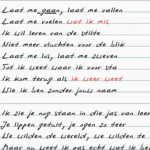 Laat me gaan, laat me vallen
Laat me voelen wat ik mis
Ik wil leren van de stilte
Niet meer vluchten voor de blik
Laat me los, laat me zweven
Tot ik weet waar ik voor sta
Ik kom terug als ik weer weet
Wie ik ben zonder jouw naam
Ik zie je nog staan in die jas van leer
Je lippen getuit, je ogen zo teer
We wilden de wereld, we wilden te
Maar nu weet ik pas echt wat ik ben